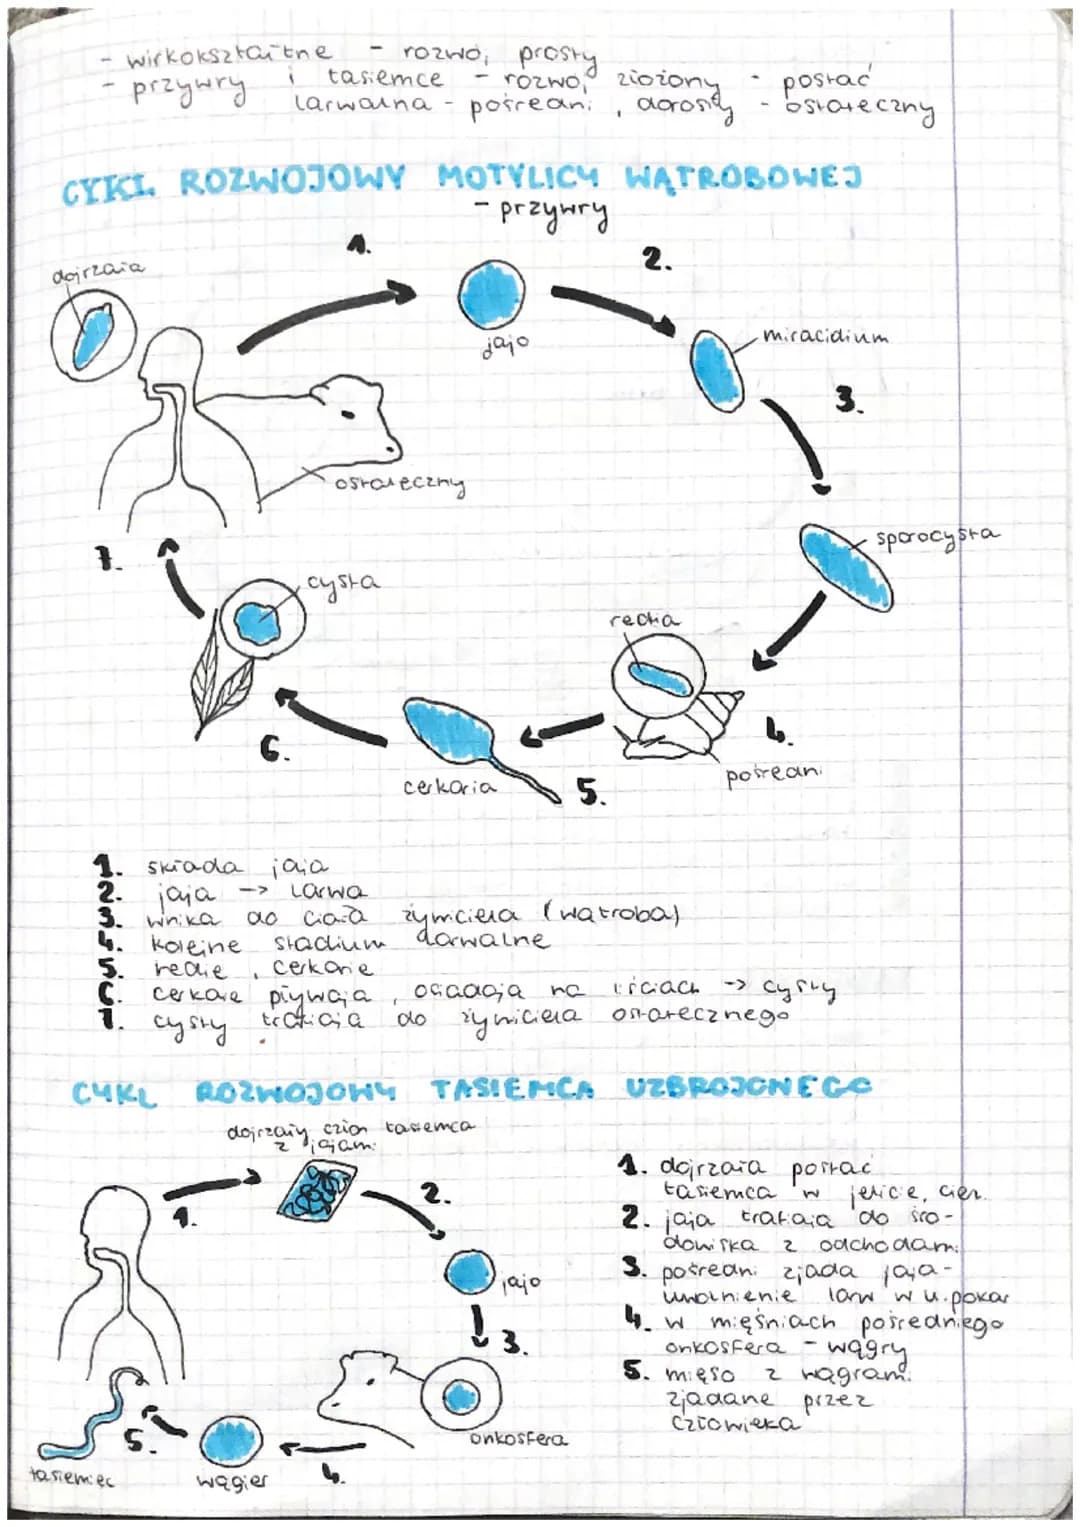 - wirkokształtne - rozwój prosty
- przywry i tasiemce - rozwój złożony - postać
larwalna - pośredni, dorosły - ostateczny
CYKL ROZWOJOWY MOTYLICY WĄTROBOWEJ
- przywry
1.
2.
dojrzała
jajo
miracidium
3.
ostateczny
sporocysta
7.
cysta
redia
4.
6.
cerkaria
5.
pośredni
1. składa jaja
2. jaja -> larwa
3. wnika do ciała żywiciela (wątroba)
4. kolejne stadium larwalne
5. redie, cerkarie
6. cerkarie pływają, osiadają na liściach -> cysty
7. cysty trafiają do żywiciela ostatecznego
CYKL ROZWOJOWY TASIEMCA UZBROJONEGO
dojrzały człon tasiemca
z jajami
1.
2.
jajo
3.
onkosfera
4.
wągier
5.
tasiemiec
1. dojrzała postać
tasiemca w jelicie cien.
2. jaja trafiają do śro-
dowiska z odchodami
3. pośredni zjada jaja -
uwolnienie larw w u.pokar
4. w mięśniach pośredniego
onkosfera - wągry
5. mięso z wągrami
zjadane przez
człowieka